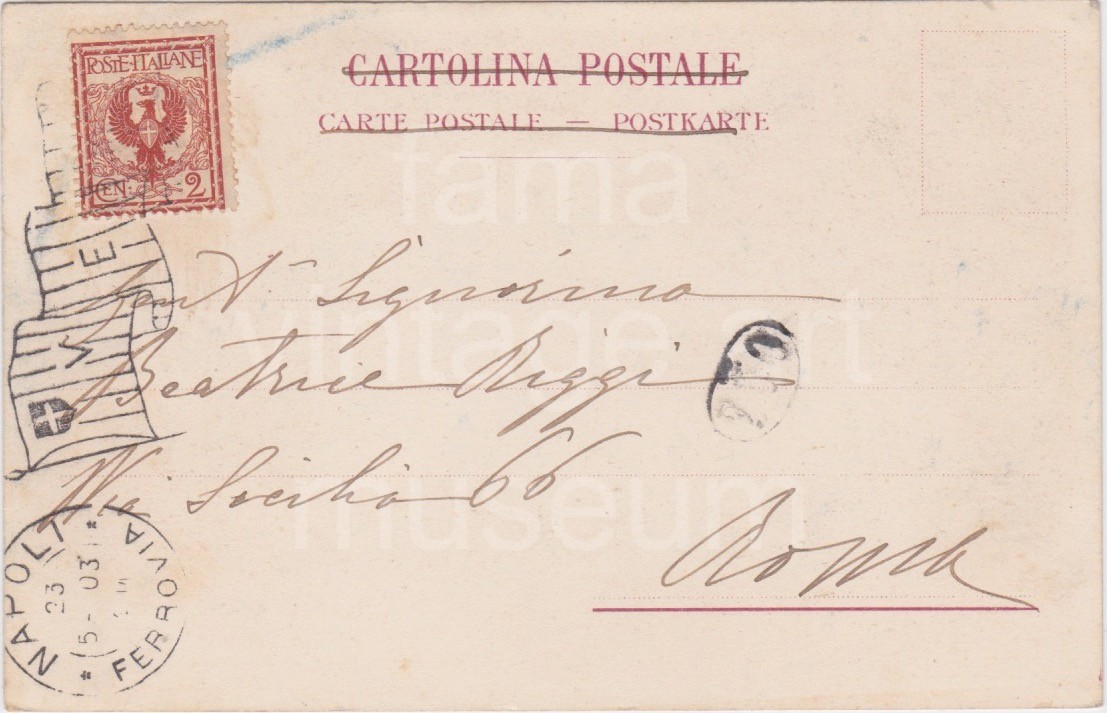 POSTE·ITALIANE
CEN: 2
CARTOLINA POSTALE
CARTE POSTALE — POSTKARTE
fama
vintage art
museum
V E
Gent^a Signorina
Beatrice Riggi
Via Sicilia 66
Roma
NAPOLI
23
5-03
FERROVIA